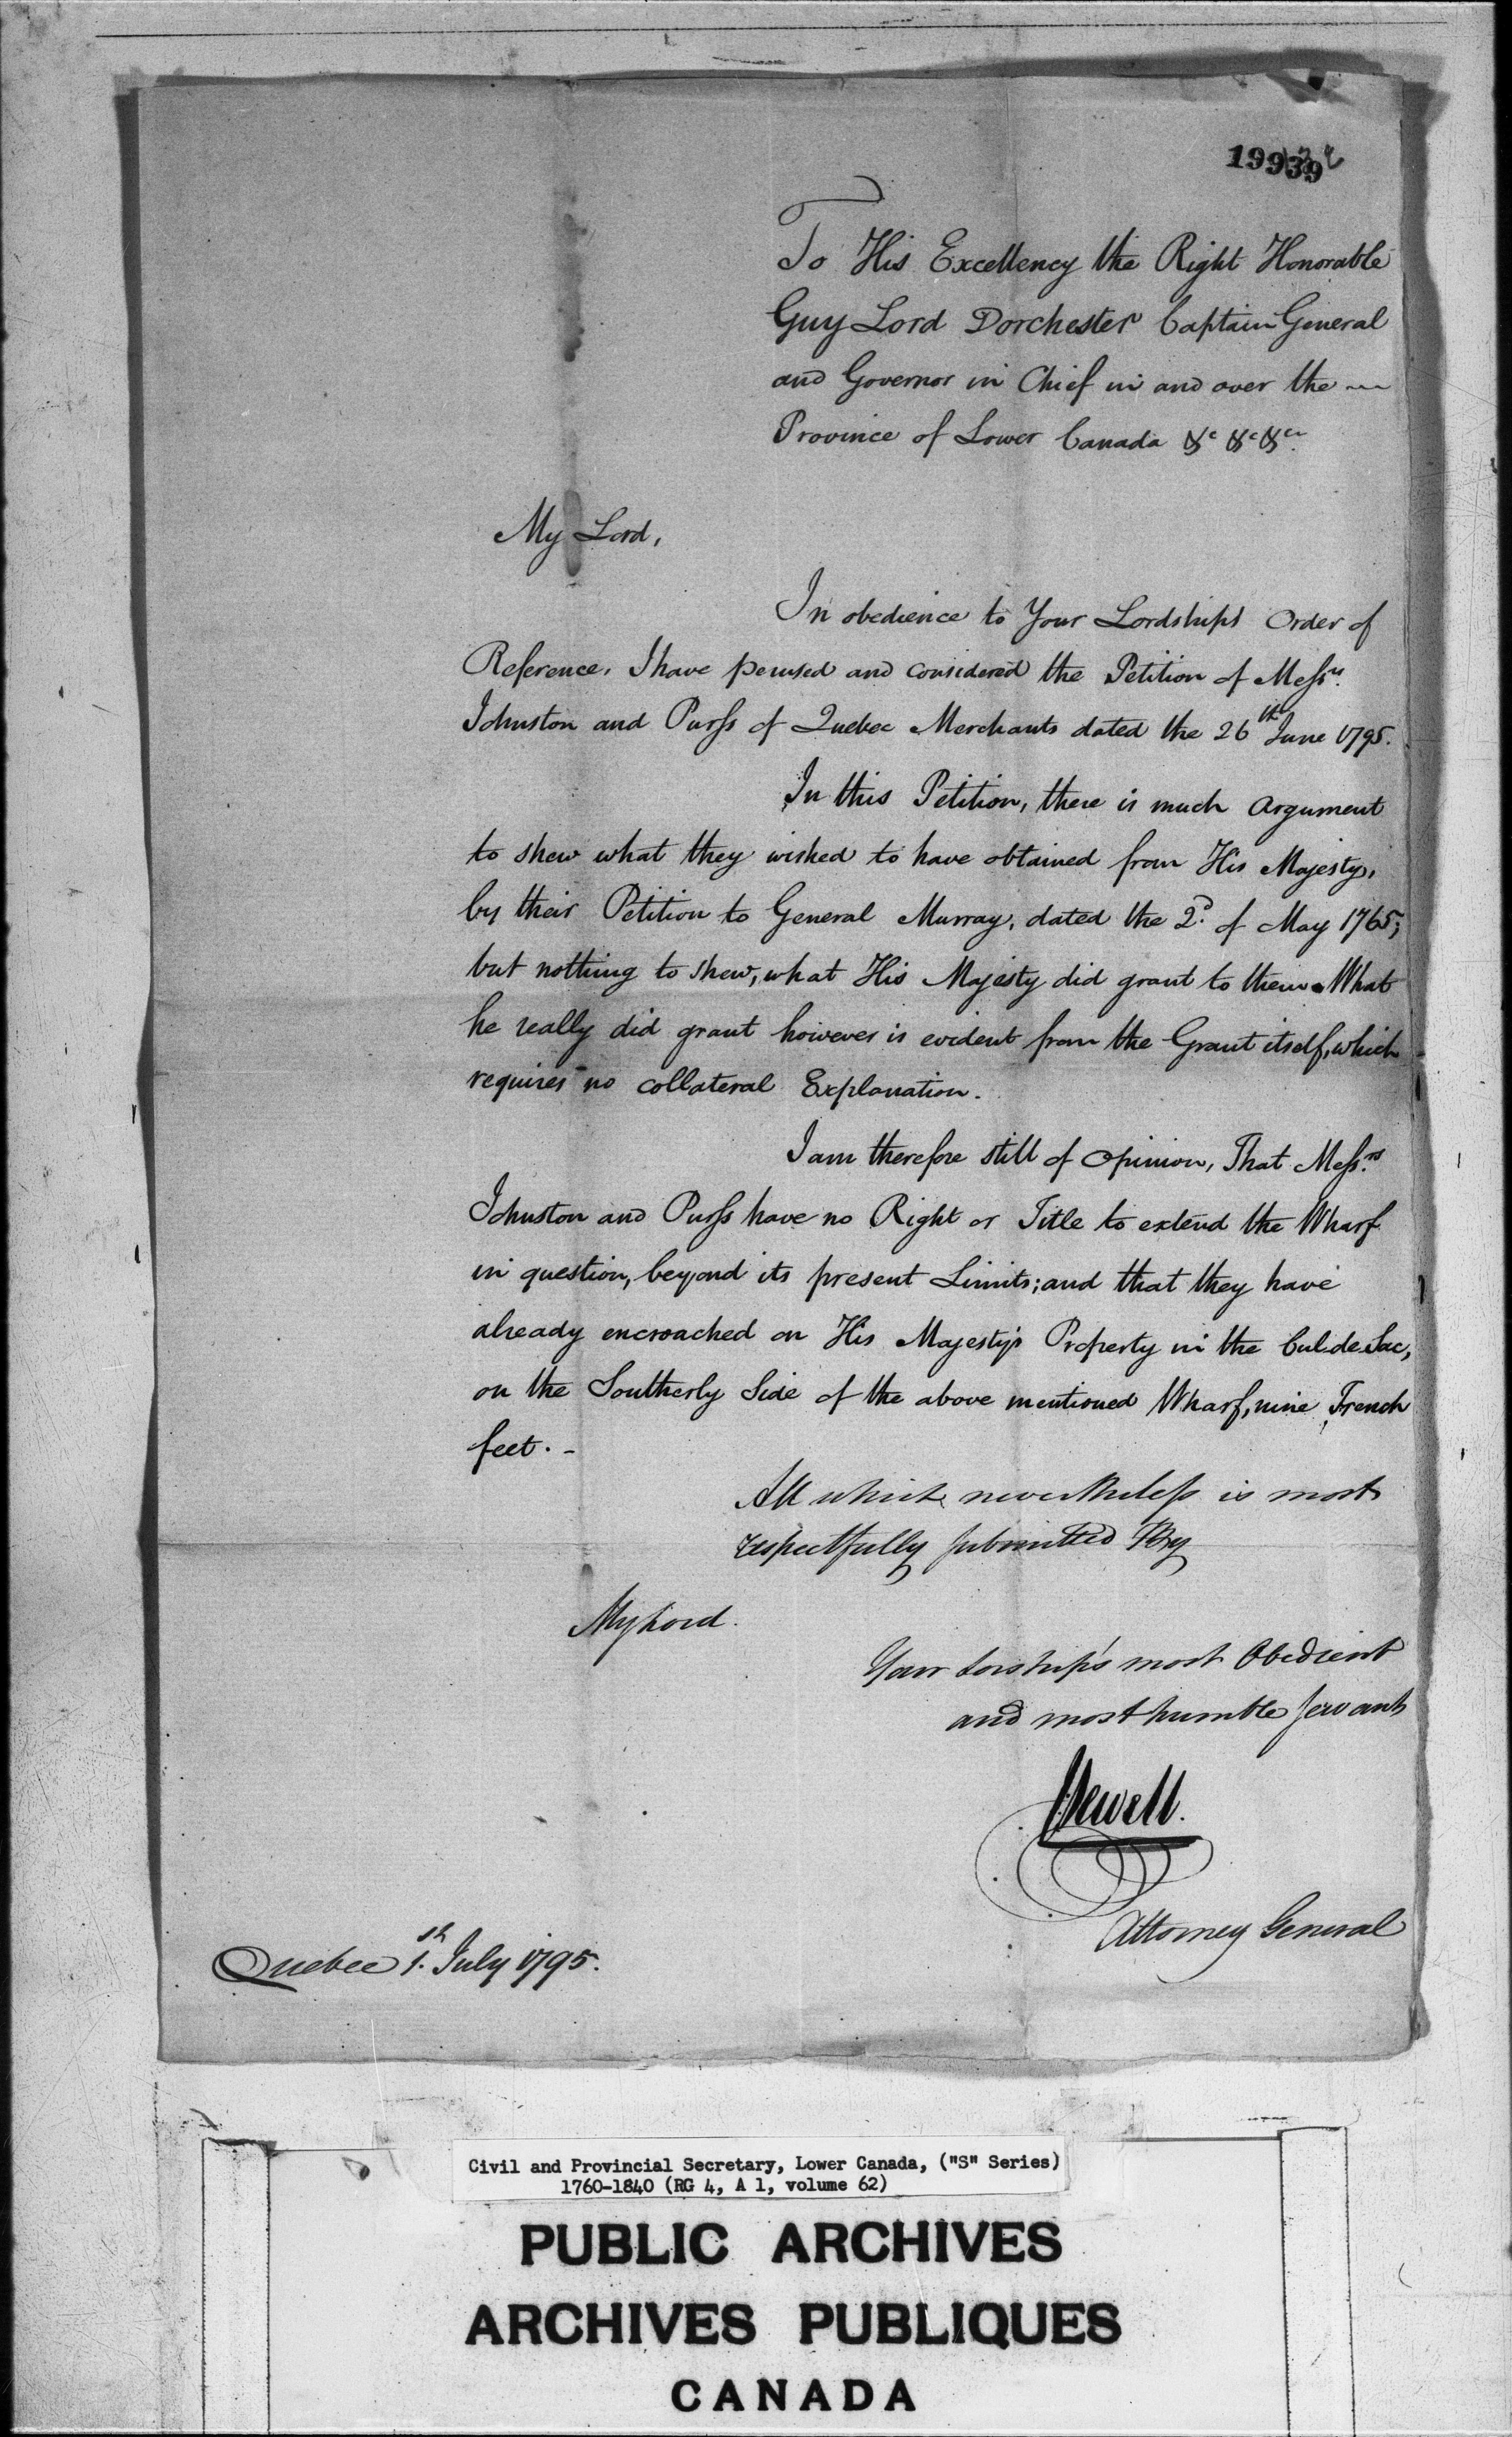 19939
To His Excellency the Right Honorable
Guy Lord Dorchester Captain General
and Governor in Chief in and over the
Province of Lower Canada &c &c &ca.
My Lord,
In obedience to Your Lordships Order of
Reference, I have perused and considered the Petition of Messrs.
Johnston and Purss of Quebec Merchants dated the 26th June 1795.
In this Petition, there is much Argument
to shew what they wished to have obtained from His Majesty,
by their Petition to General Murray, dated the 2d. of May 1765;
but nothing to shew, what His Majesty did grant to them. What
he really did grant however is evident from the Grant itself, which
requires no collateral Explanation.
I am therefore still of Opinion, That Messrs.
Johnston and Purss have no Right or Title to extend the Wharf
in question, beyond its present Limits; and that they have
already encroached on His Majesty's Property in the Cul de Sac,
on the Southerly Side of the above mentioned Wharf, nine French
feet. -
All which nevertheless is most
respectfully submitted By
My Lord.
Your Lorship's most Obedient
and most humble Servant
JSewell.
Attorney General
Quebec 1st. July 1795.
Civil and Provincial Secretary, Lower Canada, ("S" Series)
1760-1840 (RG 4, A 1, volume 62)
PUBLIC ARCHIVES
ARCHIVES PUBLIQUES
CANADA